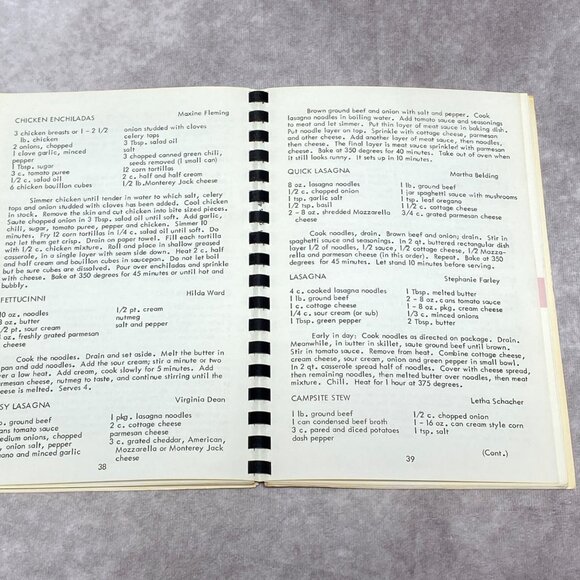 CHICKEN ENCHILADAS
Maxine Fleming
3 chicken breasts or 1 - 2 1/2
lb. chicken
2 onions, chopped
1 clove garlic, minced
pepper
1 Tbsp. sugar
3 c. tomato puree
1/2 c. salad oil
6 chicken bouillon cubes
onion studded with cloves
celery tops
3 Tbsp. salad oil
salt
3 chopped canned green chili,
seeds removed (1 small can)
12 corn tortillas
2 c. half and half cream
1/2 lb. Monterey Jack cheese
Simmer chicken until tender in water to which salt, celery
tops and onion studded with cloves has been added. Cool chicken
in stock. Remove the skin and cut chicken into bite sized pieces.
Saute chopped onion in 3 Tbsp. salad oil until soft. Add garlic,
chili, sugar, tomato puree, pepper and chicken. Simmer 10
minutes. Fry 12 corn tortillas in 1/4 c. salad oil until soft. Do
not let them get crisp. Drain on paper towel. Fill each tortilla
with 1/2 c. chicken mixture. Roll and place in shallow greased
casserole, in a single layer with seam side down. Heat 2 c. half
and half cream and bouillon cubes in saucepan. Do not let boil
but be sure cubes are dissolved. Pour over enchiladas and sprinkle
with cheese. Bake at 350 degrees for 45 minutes or until hot and
bubbly.
FETTUCINNI
Hilda Ward
10 oz. noodles
oz. butter
1/2 pt. sour cream
oz. freshly grated parmesan
cheese
1/2 pt. cream
nutmeg
salt and pepper
Cook the noodles. Drain and set aside. Melt the butter in
pan and add noodles. Add the sour cream; stir a minute or two
over a low heat. Add cream, cook slowly for 5 minutes. Add
parmesan cheese, nutmeg to taste, and continue stirring until the
cheese is melted. Serves 4.
SY LASAGNA
Virginia Dean
lb. ground beef
cans tomato sauce
medium onions, chopped
onion salt, pepper
and minced garlic
1 pkg. lasagna noodles
2 c. cottage cheese
parmesan cheese
3 c. grated cheddar, American,
Mozzarella or Monterey Jack
cheese
38
Brown ground beef and onion with salt and pepper. Cook
lasagna noodles in boiling water. Add tomato sauce and seasonings
to meat and let simmer. Put thin layer of meat sauce in baking dish.
Put noodle layer on top. Sprinkle with cottage cheese, parmesan
and other cheese. Add another layer of meat sauce, then noodles,
then cheese. The final layer is meat sauce sprinkled with parmesan
cheese. Bake at 350 degrees for 40 minutes. Take out of oven when
it still looks runny. It sets up in 10 minutes.
QUICK LASAGNA
Martha Belding
8 oz. lasagna noodles
1/2 c. chopped onion
1 tsp. garlic salt
1/2 tsp. basil
2 - 8 oz. shredded Mozzarella
cheese
1 lb. ground beef
1 jar spaghetti sauce with mushrooms
1 tsp. leaf oregano
1 1/2 c. cottage cheese
3/4 c. grated parmesan cheese
Cook noodles, drain. Brown beef and onion; drain. Stir in
spaghetti sauce and seasonings. In 2 qt. buttered rectangular dish
layer 1/2 of noodles, 1/2 sauce, 1/2 cottage cheese, 1/2 Mozza-
rella and parmesan cheese (in this order). Repeat. Bake at 350
degrees for 45 minutes. Let stand 10 minutes before serving.
LASAGNA
Stephanie Farley
4 c. cooked lasagna noodles
1 lb. ground beef
1 c. cottage cheese
1/4 c. sour cream (or sub)
1 Tbsp. green pepper
1 Tbsp. melted butter
2 - 8 oz. cans tomato sauce
1 - 8 oz. pkg. cream cheese
1/3 c. minced onions
2 Tbsp. butter
Early in day: Cook noodles as directed on package. Drain.
Meanwhile, in butter in skillet, saute ground beef until brown.
Stir in tomato sauce. Remove from heat. Combine cottage cheese,
cream cheese, sour cream, onion and green pepper in small bowl.
In 2 qt. casserole spread half of noodles. Cover with cheese spread,
then remaining noodles, then melted butter over noodles, then meat
mixture. Chill. Heat for 1 hour at 375 degrees.
CAMPSITE STEW
Letha Schacher
1 lb. ground beef
1 can condensed beef broth
3 c. pared and diced potatoes
dash pepper
1/2 c. chopped onion
1 - 16 oz. can cream style corn
1 tsp. salt
39
(Cont.)